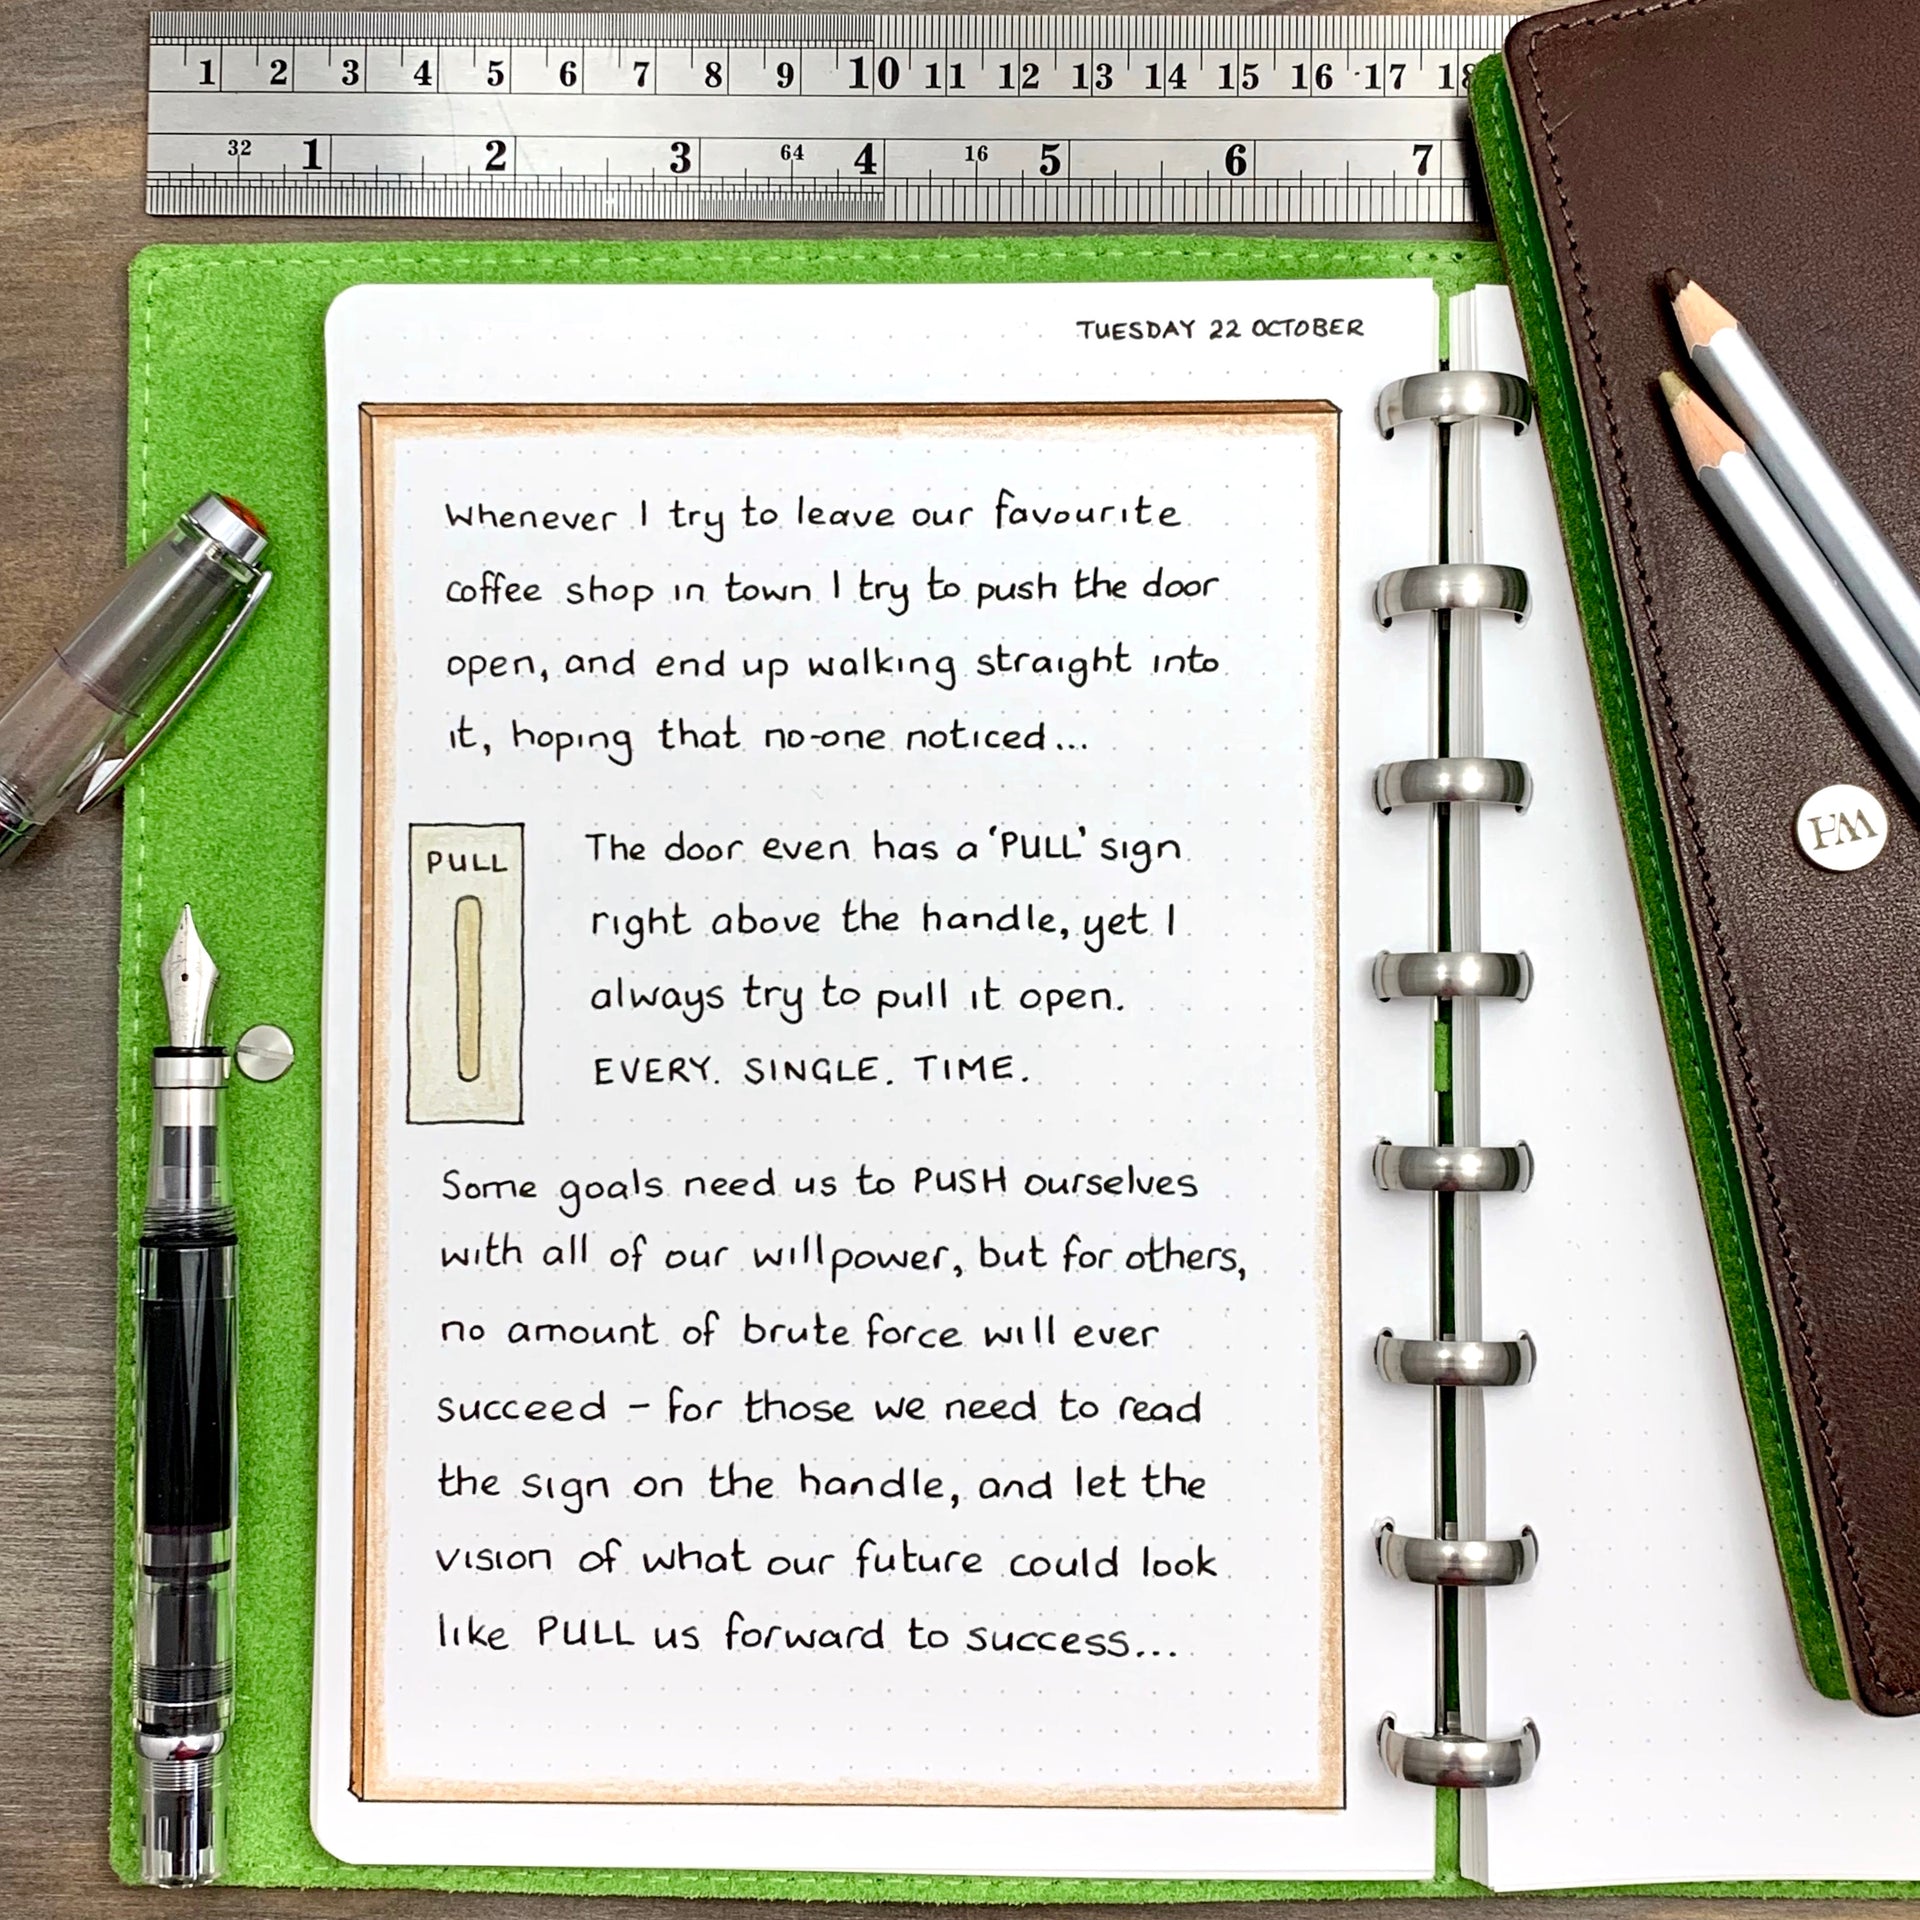 1 2 3 4 5 6 7 8 9 10 11 12 13 14 15 16 17 18
32 1 2 3 64 4 16 5 6 7
TUESDAY 22 OCTOBER
Whenever I try to leave our favourite
coffee shop in town I try to push the door
open, and end up walking straight into
it, hoping that no-one noticed...
PULL
The door even has a 'PULL' sign
right above the handle, yet I
always try to pull it open.
EVERY. SINGLE. TIME.
Some goals need us to PUSH ourselves
with all of our willpower, but for others,
no amount of brute force will ever
succeed – for those we need to read
the sign on the handle, and let the
vision of what our future could look
like PULL us forward to success...